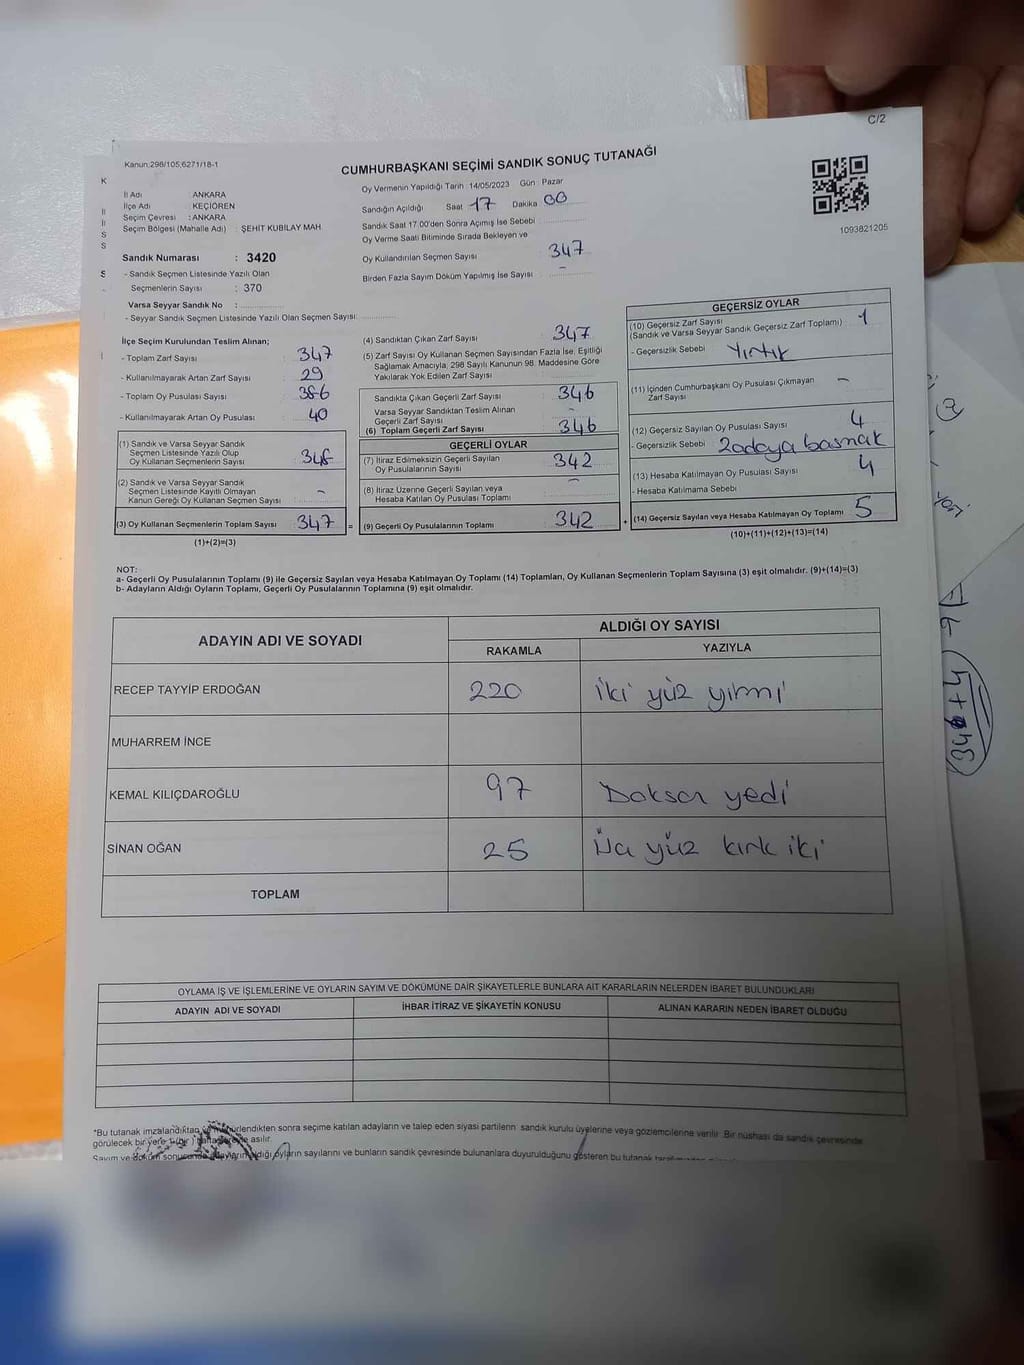 C/2
Kanun:298/105,6271/18-1
CUMHURBAŞKANI SEÇİMİ SANDIK SONUÇ TUTANAĞI
İl Adı : ANKARA
İlçe Adı : KEÇİÖREN
Seçim Çevresi : ANKARA
Seçim Bölgesi (Mahalle Adı) : ŞEHİT KUBİLAY MAH.
Sandık Numarası : 3420
- Sandık Seçmen Listesinde Yazılı Olan
Seçmenlerin Sayısı : 370
Varsa Seyyar Sandık No :
- Seyyar Sandık Seçmen Listesinde Yazılı Olan Seçmen Sayısı:
Oy Vermenin Yapıldığı Tarih : 14/05/2023 Gün : Pazar
Sandığın Açıldığı Saat 17 Dakika 00
Sandık Saat 17.00'den Sonra Açılmış İse Sebebi
Oy Verme Saati Bitiminde Sırada Bekleyen ve
Oy Kullandırılan Seçmen Sayısı 347
Birden Fazla Sayım Döküm Yapılmış İse Sayısı : -
1093821205
İlçe Seçim Kurulundan Teslim Alınan;
- Toplam Zarf Sayısı : 347
- Kullanılmayarak Artan Zarf Sayısı : 29
- Toplam Oy Pusulası Sayısı : 386
- Kullanılmayarak Artan Oy Pusulası : 40
(1) Sandık ve Varsa Seyyar Sandık
Seçmen Listesinde Yazılı Olup
Oy Kullanan Seçmenlerin Sayısı
(2) Sandık ve Varsa Seyyar Sandık
Seçmen Listesinde Kayıtlı Olmayan
Kanun Gereği Oy Kullanan Seçmen Sayısı : -
(3) Oy Kullanan Seçmenlerin Toplam Sayısı : 347 =
(1)+(2)=(3)
(4) Sandıktan Çıkan Zarf Sayısı : 347
(5) Zarf Sayısı Oy Kullanan Seçmen Sayısından Fazla İse, Eşitliği
Sağlamak Amacıyla, 298 Sayılı Kanunun 98. Maddesine Göre
Yakılarak Yok Edilen Zarf Sayısı
Sandıkta Çıkan Geçerli Zarf Sayısı : 346
Varsa Seyyar Sandıktan Teslim Alınan
Geçerli Zarf Sayısı : -
(6) Toplam Geçerli Zarf Sayısı : 346
GEÇERLİ OYLAR
(7) İtiraz Edilmeksizin Geçerli Sayılan
Oy Pusulalarının Sayısı : 342
(8) İtiraz Üzerine Geçerli Sayılan veya
Hesaba Katılan Oy Pusulası Toplamı : -
(9) Geçerli Oy Pusulalarının Toplamı : 342 +
GEÇERSİZ OYLAR
(10) Geçersiz Zarf Sayısı : 1
(Sandık ve Varsa Seyyar Sandık Geçersiz Zarf Toplamı)
- Geçersizlik Sebebi : Yırtık
(11) İçinden Cumhurbaşkanı Oy Pusulası Çıkmayan
Zarf Sayısı : -
(12) Geçersiz Sayılan Oy Pusulası Sayısı : 4
- Geçersizlik Sebebi : 2 adaya basmak
(13) Hesaba Katılmayan Oy Pusulası Sayısı : 4
- Hesaba Katılmama Sebebi :
(14) Geçersiz Sayılan veya Hesaba Katılmayan Oy Toplamı : 5
(10)+(11)+(12)+(13)=(14)
NOT:
a- Geçerli Oy Pusulalarının Toplamı (9) ile Geçersiz Sayılan veya Hesaba Katılmayan Oy Toplamı (14) Toplamları, Oy Kullanan Seçmenlerin Toplam Sayısına (3) eşit olmalıdır. (9)+(14)=(3)
b- Adayların Aldığı Oyların Toplamı, Geçerli Oy Pusulalarının Toplamına (9) eşit olmalıdır.
ADAYIN ADI VE SOYADI
ALDIĞI OY SAYISI
RAKAMLA YAZIYLA
RECEP TAYYİP ERDOĞAN 220 iki yüz yirmi
MUHARREM İNCE
KEMAL KILIÇDAROĞLU 97 Doksan yedi
SİNAN OĞAN 25 Üç yüz kırk iki
TOPLAM
OYLAMA İŞ VE İŞLEMLERİNE VE OYLARIN SAYIM VE DÖKÜMÜNE DAİR ŞİKAYETLERLE BUNLARA AİT KARARLARIN NELERDEN İBARET BULUNDUKLARI
ADAYIN ADI VE SOYADI İHBAR İTİRAZ VE ŞİKAYETİN KONUSU ALINAN KARARIN NEDEN İBARET OLDUĞU
*Bu tutanak imzalandıktan ve mühürlendikten sonra seçime katılan adayların ve talep eden siyasi partilerin sandık kurulu üyelerine veya gözlemcilerine verilir. Bir nüshası da sandık çevresinde
görülecek bir yere 1 (bir) asılır.
Sayım ve döküm sonucunda adayların aldığı oyların sayılarını ve bunların sandık çevresinde bulunanlara duyurulduğunu gösteren bu tutanak